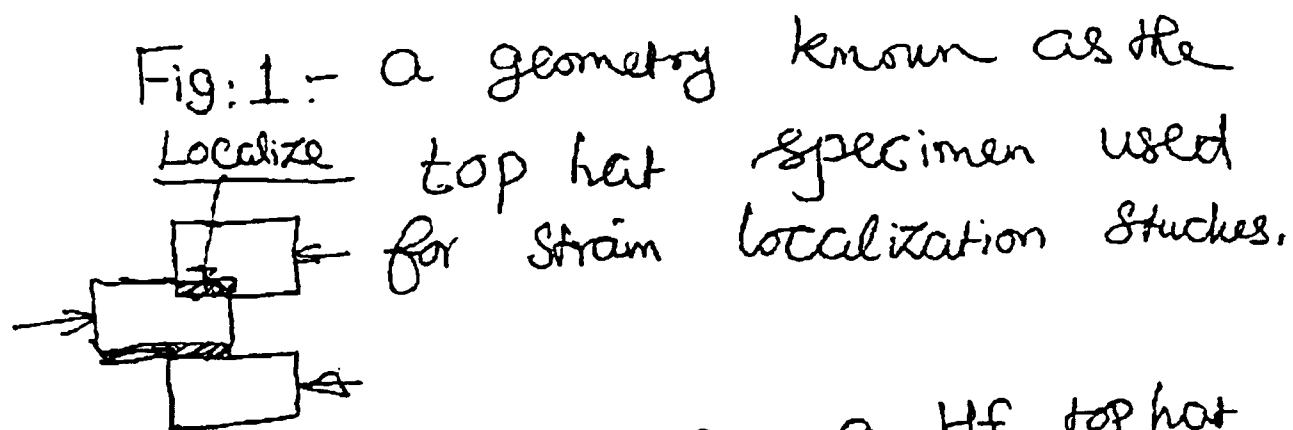 Fig: 1 :- a geometry known as the
Localize
top hat specimen used
for strain localization studies.
a Hf top hat